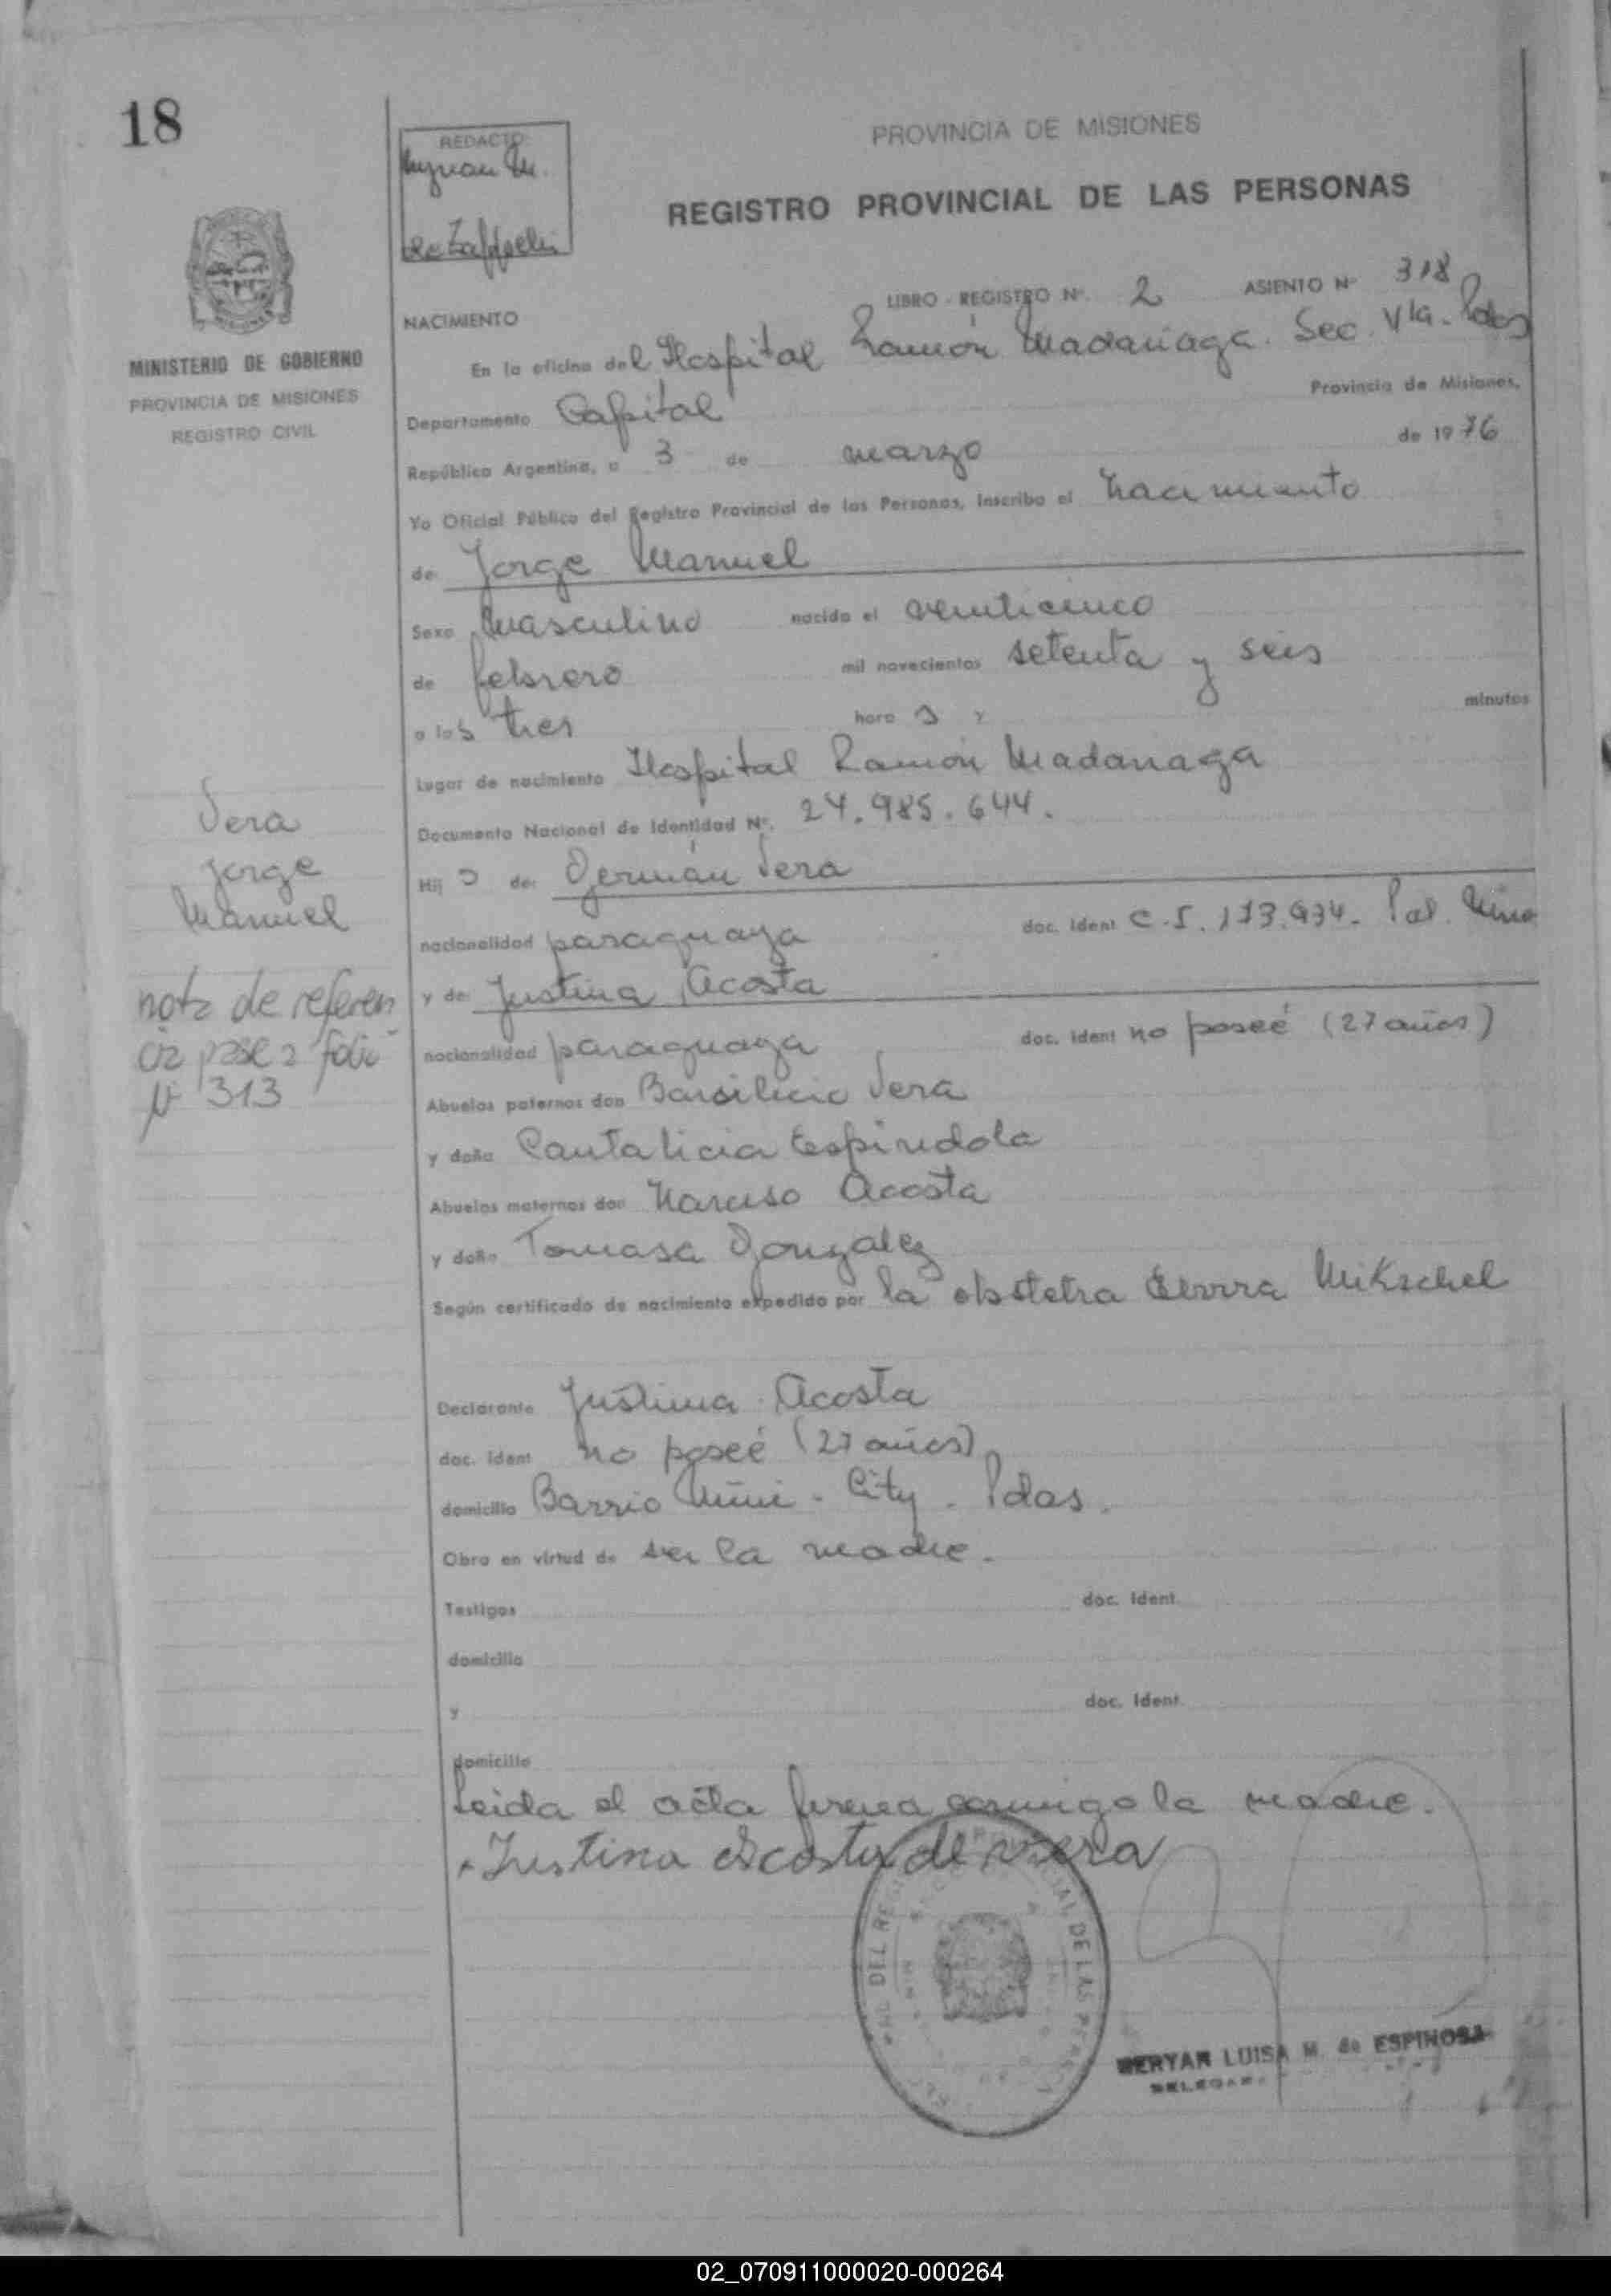 18
REDACTO:
Myrian M.
de Zappelli
PROVINCIA DE MISIONES
REGISTRO PROVINCIAL DE LAS PERSONAS
MINISTERIO DE GOBIERNO
PROVINCIA DE MISIONES
REGISTRO CIVIL
LIBRO - REGISTRO Nº. 2 ASIENTO Nº 318
NACIMIENTO
En la oficina del Hospital Ramón Madariaga. Sec. Vta. Pdas
Departamento Capital Provincia de Misiones,
República Argentina, a 3 de marzo de 1976
Yo Oficial Público del Registro Provincial de las Personas, inscribo el nacimiento
de Jorge Manuel
Sexo Masculino nacido el veinticinco
de febrero mil novecientos setenta y seis
a las tres hora s y minutos
Lugar de nacimiento Hospital Ramón Madariaga
Documento Nacional de Identidad Nº. 24.985.644.
Hij o de: Germán Vera
nacionalidad paraguaya doc. Ident C.I. 173.934. Pol. Mnes
y de: Justina Acosta
nacionalidad paraguaya doc. Ident no poseé (27 años)
Abuelos paternos don Barsilicio Vera
y doña Cantalicia Espindola
Abuelos maternos don Narciso Acosta
y doña Tomasa Gonzalez
Según certificado de nacimiento expedido por la obstetra Mikschel
Declarante Justina Acosta
doc. Ident no poseé (27 años)
domicilio Barrio Mini - City - Pdas.
Obra en virtud de ser la madre.
Testigos doc. Ident.
domicilio
y doc. Ident.
domicilio
Leida el acta firma conmigo la madre.
Justina Acosta de Vera
Vera
Jorge
Manuel
nota de referen
cia pase a folio
Nº 313
DEL REGISTRO PROVINCIAL DE LAS PERSONAS
MERYAN LUISA M. de ESPINOSA
DELEGADA
02_070911000020-000264